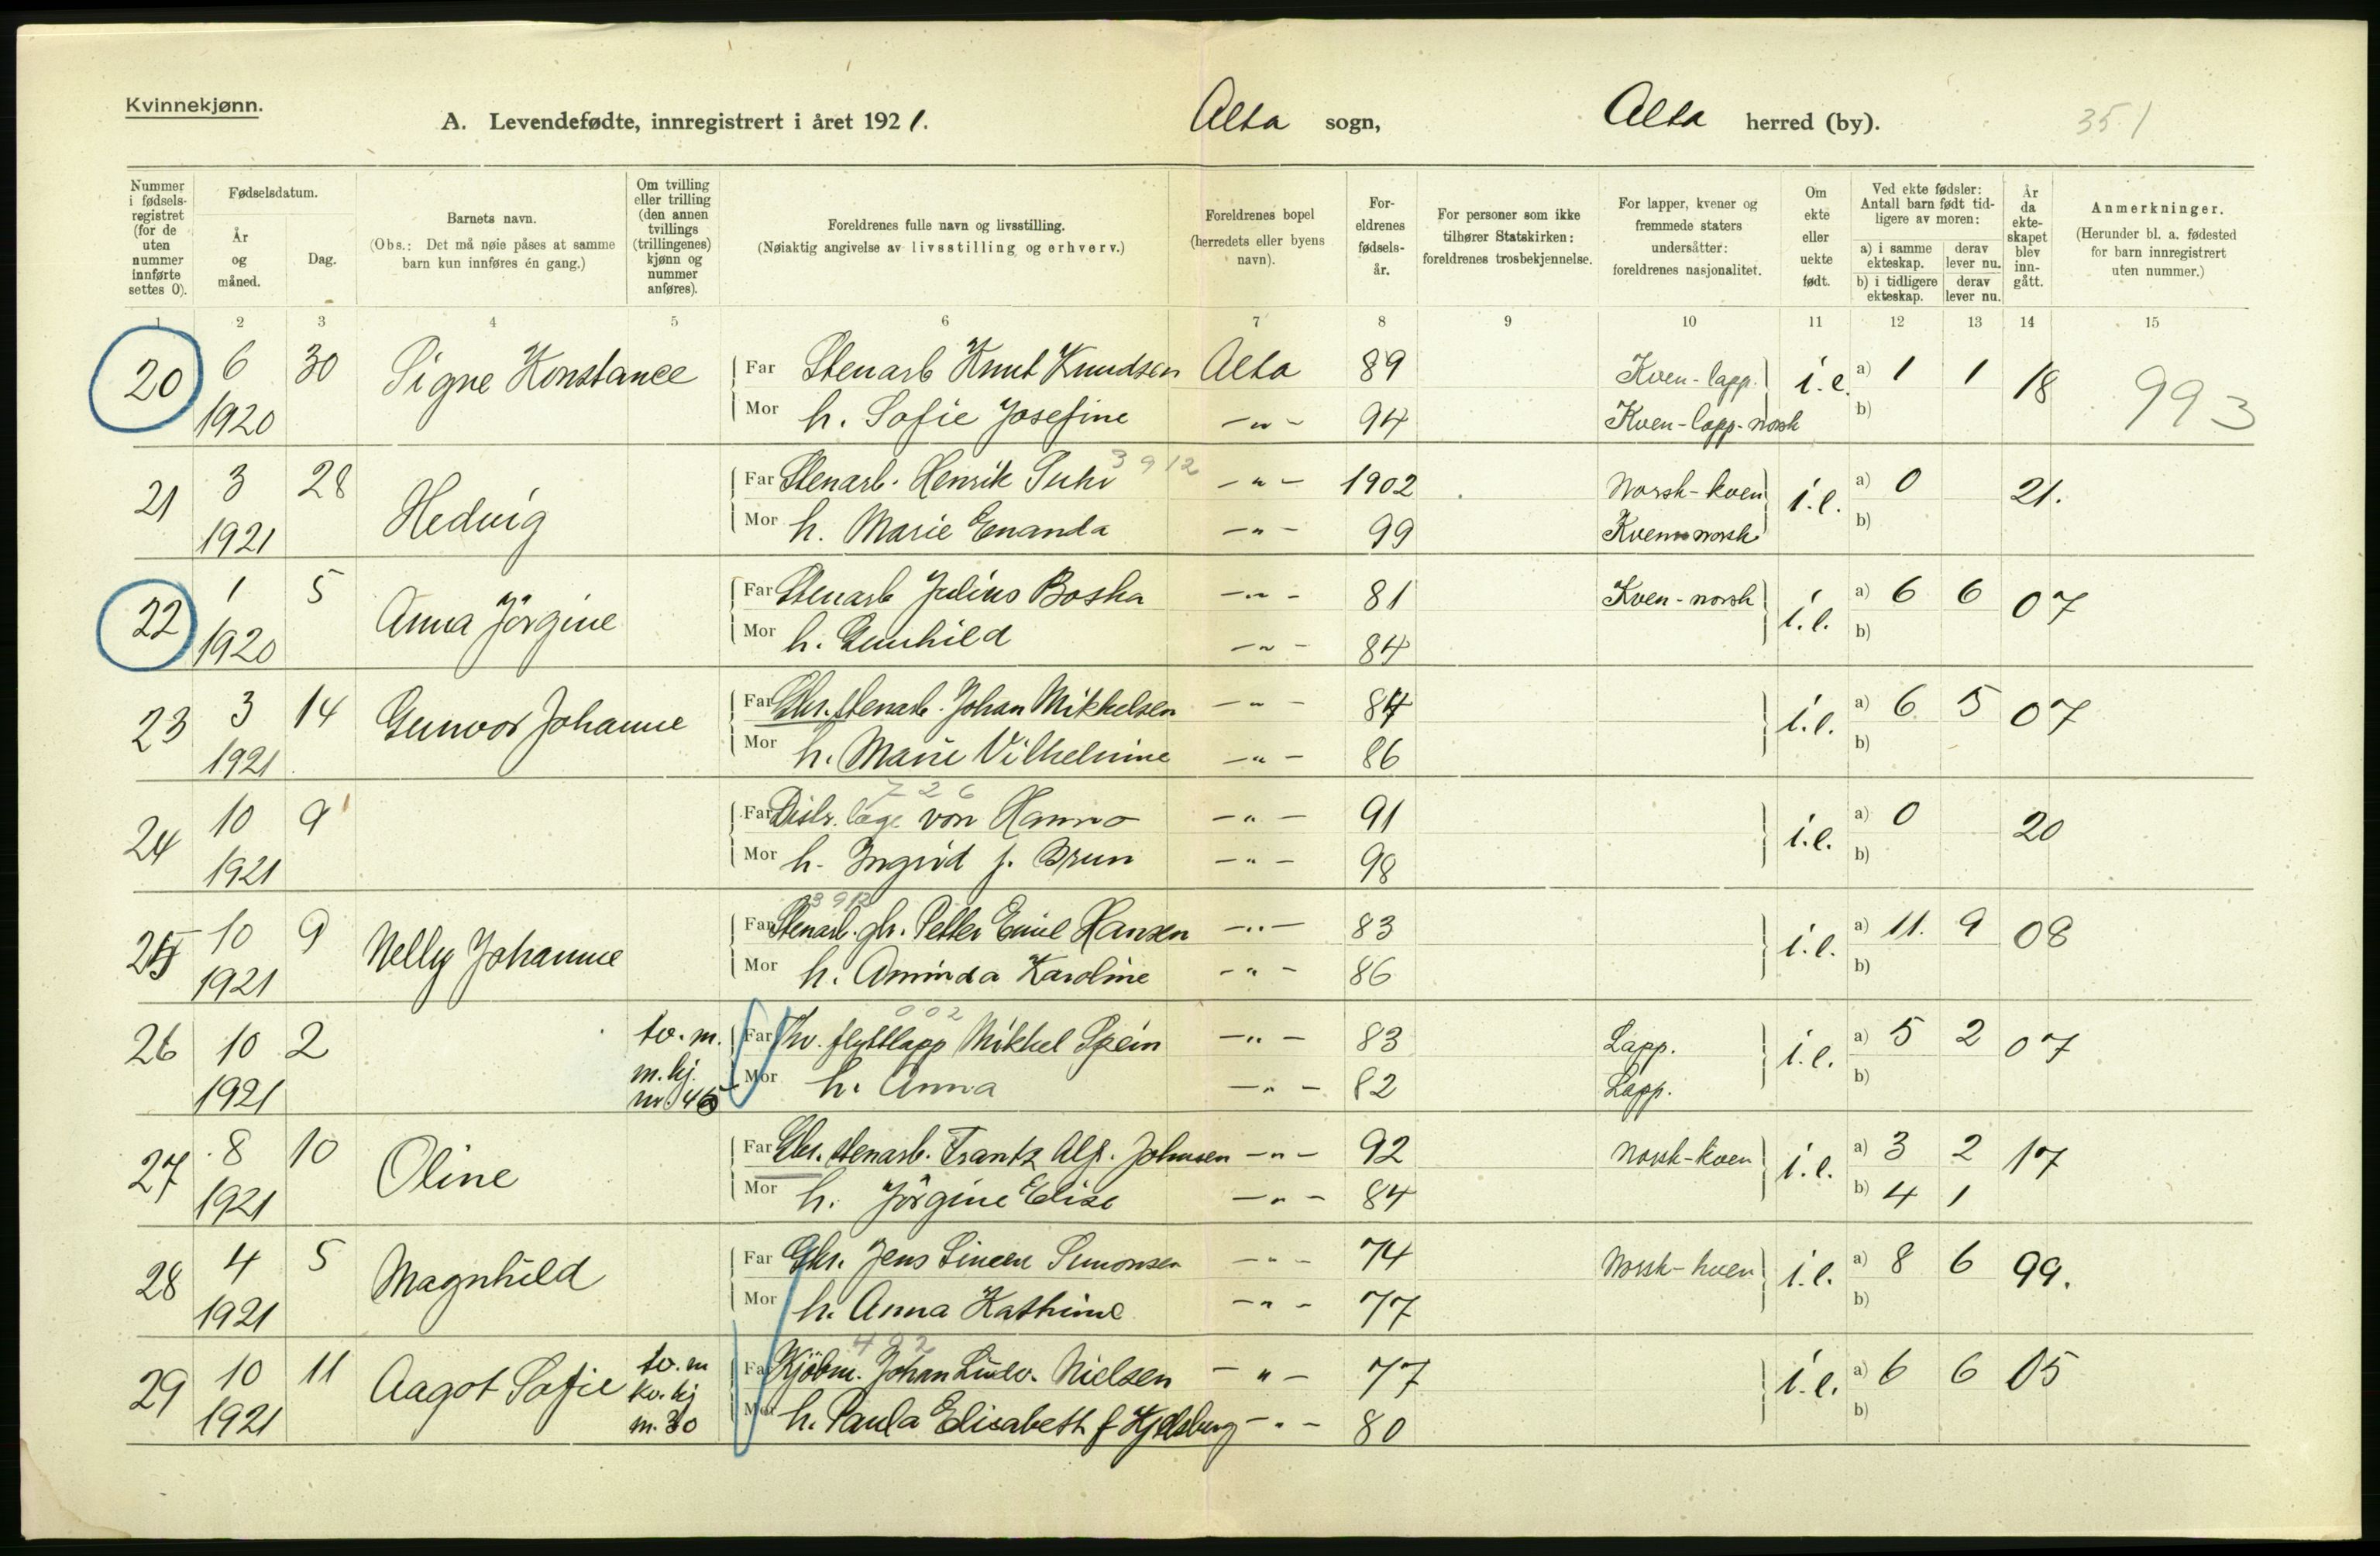 Kvinnekjønn.
A. Levendefødte, innregistrert i året 1921. Alta sogn, Alta herred (by). 351
Nummer i fødselsregistret (for de uten nummer innførte settes 0).
Fødselsdatum.
År og måned.
Dag.
Barnets navn.
(Obs.: Det må nøie påses at samme barn kun innføres én gang.)
Om tvilling eller trilling (den annen tvillings (trillingenes) kjønn og nummer anføres).
Foreldrenes fulle navn og livsstilling.
(Nøiaktig angivelse av livsstilling og erhverv.)
Foreldrenes bopel (herredets eller byens navn).
Foreldrenes fødselsår.
For personer som ikke tilhører Statskirken: foreldrenes trosbekjennelse.
For lapper, kvener og fremmede staters undersåtter: foreldrenes nasjonalitet.
Om ekte eller uekte født.
Ved ekte fødsler: Antall barn født tidligere av moren:
a) i samme ekteskap. derav lever nu.
b) i tidligere ekteskap. derav lever nu.
År da ekteskapet blev inngått.
Anmerkninger.
(Herunder bl. a. fødested for barn innregistrert uten nummer.)
1 2 3 4 5 6 7 8 9 10 11 12 13 14 15
20 6 30 Signe Konstance Far Stenarb Knut Knudsen Alta 89 Kven-lapp. i.e. a) 1 1 18 993
1920 Mor h. Sofie Josefine -"- 94 Kven-lapp-norsk b)
3912
21 3 28 Hedvig Far Stenarb. Henrik Suhr -"- 1902 Norsk-kven i.e. a) 0 21.
1921 Mor h. Marie Emanda -"- 99 Kven norsk b)
22 1 5 Anna Jörgine Far Stenarb Julius Boska -"- 81 Kven-norsk i.e. a) 6 6 07
1920 Mor h. Gunhild -"- 84 b)
23 3 14 Gunvor Johanne Far Gbr. stenarb. Johan Mikkelsen -"- 84 i.e. a) 6 5 07
1921 Mor h. Marie Vilhelmine -"- 86 b)
726
24 10 9 Far Distr. læge von Hanno -"- 91 i.e. a) 0 20
1921 Mor h. Ingrid f. Brun -"- 98 b)
3912
25 10 9 Nelly Johanne Far Stenarb. gbr. Petter Emil Hansen -"- 83 i.e. a) 11. 9 08
1921 Mor h. Aminda Karoline -"- 86 b)
002
26 10 2 tv. m. Far flyttlapp Mikkel Spein -"- 83 Lapp. i.e. a) 5 2 07
1921 m. kj. nr. 45 Mor h. Anna -"- 82 Lapp. b)
27 8 10 Oline Far Gbr. stenarb. Frantz Alf. Johnsen -"- 92 Norsk-kven i.e. a) 3 2 17
1921 Mor h. Jörgine Elise -"- 84 b) 4 1
28 4 5 Magnhild Far Gbr. Jens Simonsen -"- 74 Norsk-kven i.e. a) 8 6 99.
1921 Mor h. Anna Kathrine -"- 77 b)
492
29 10 11 Aagot Sofie tv. m Far Kjöbm. Johan Ludv. Nielsen -"- 77 i.e. a) 6 6 05
1921 kv. kj m. 30 Mor h. Paula Elisabeth f Kjelsberg -"- 80 b)